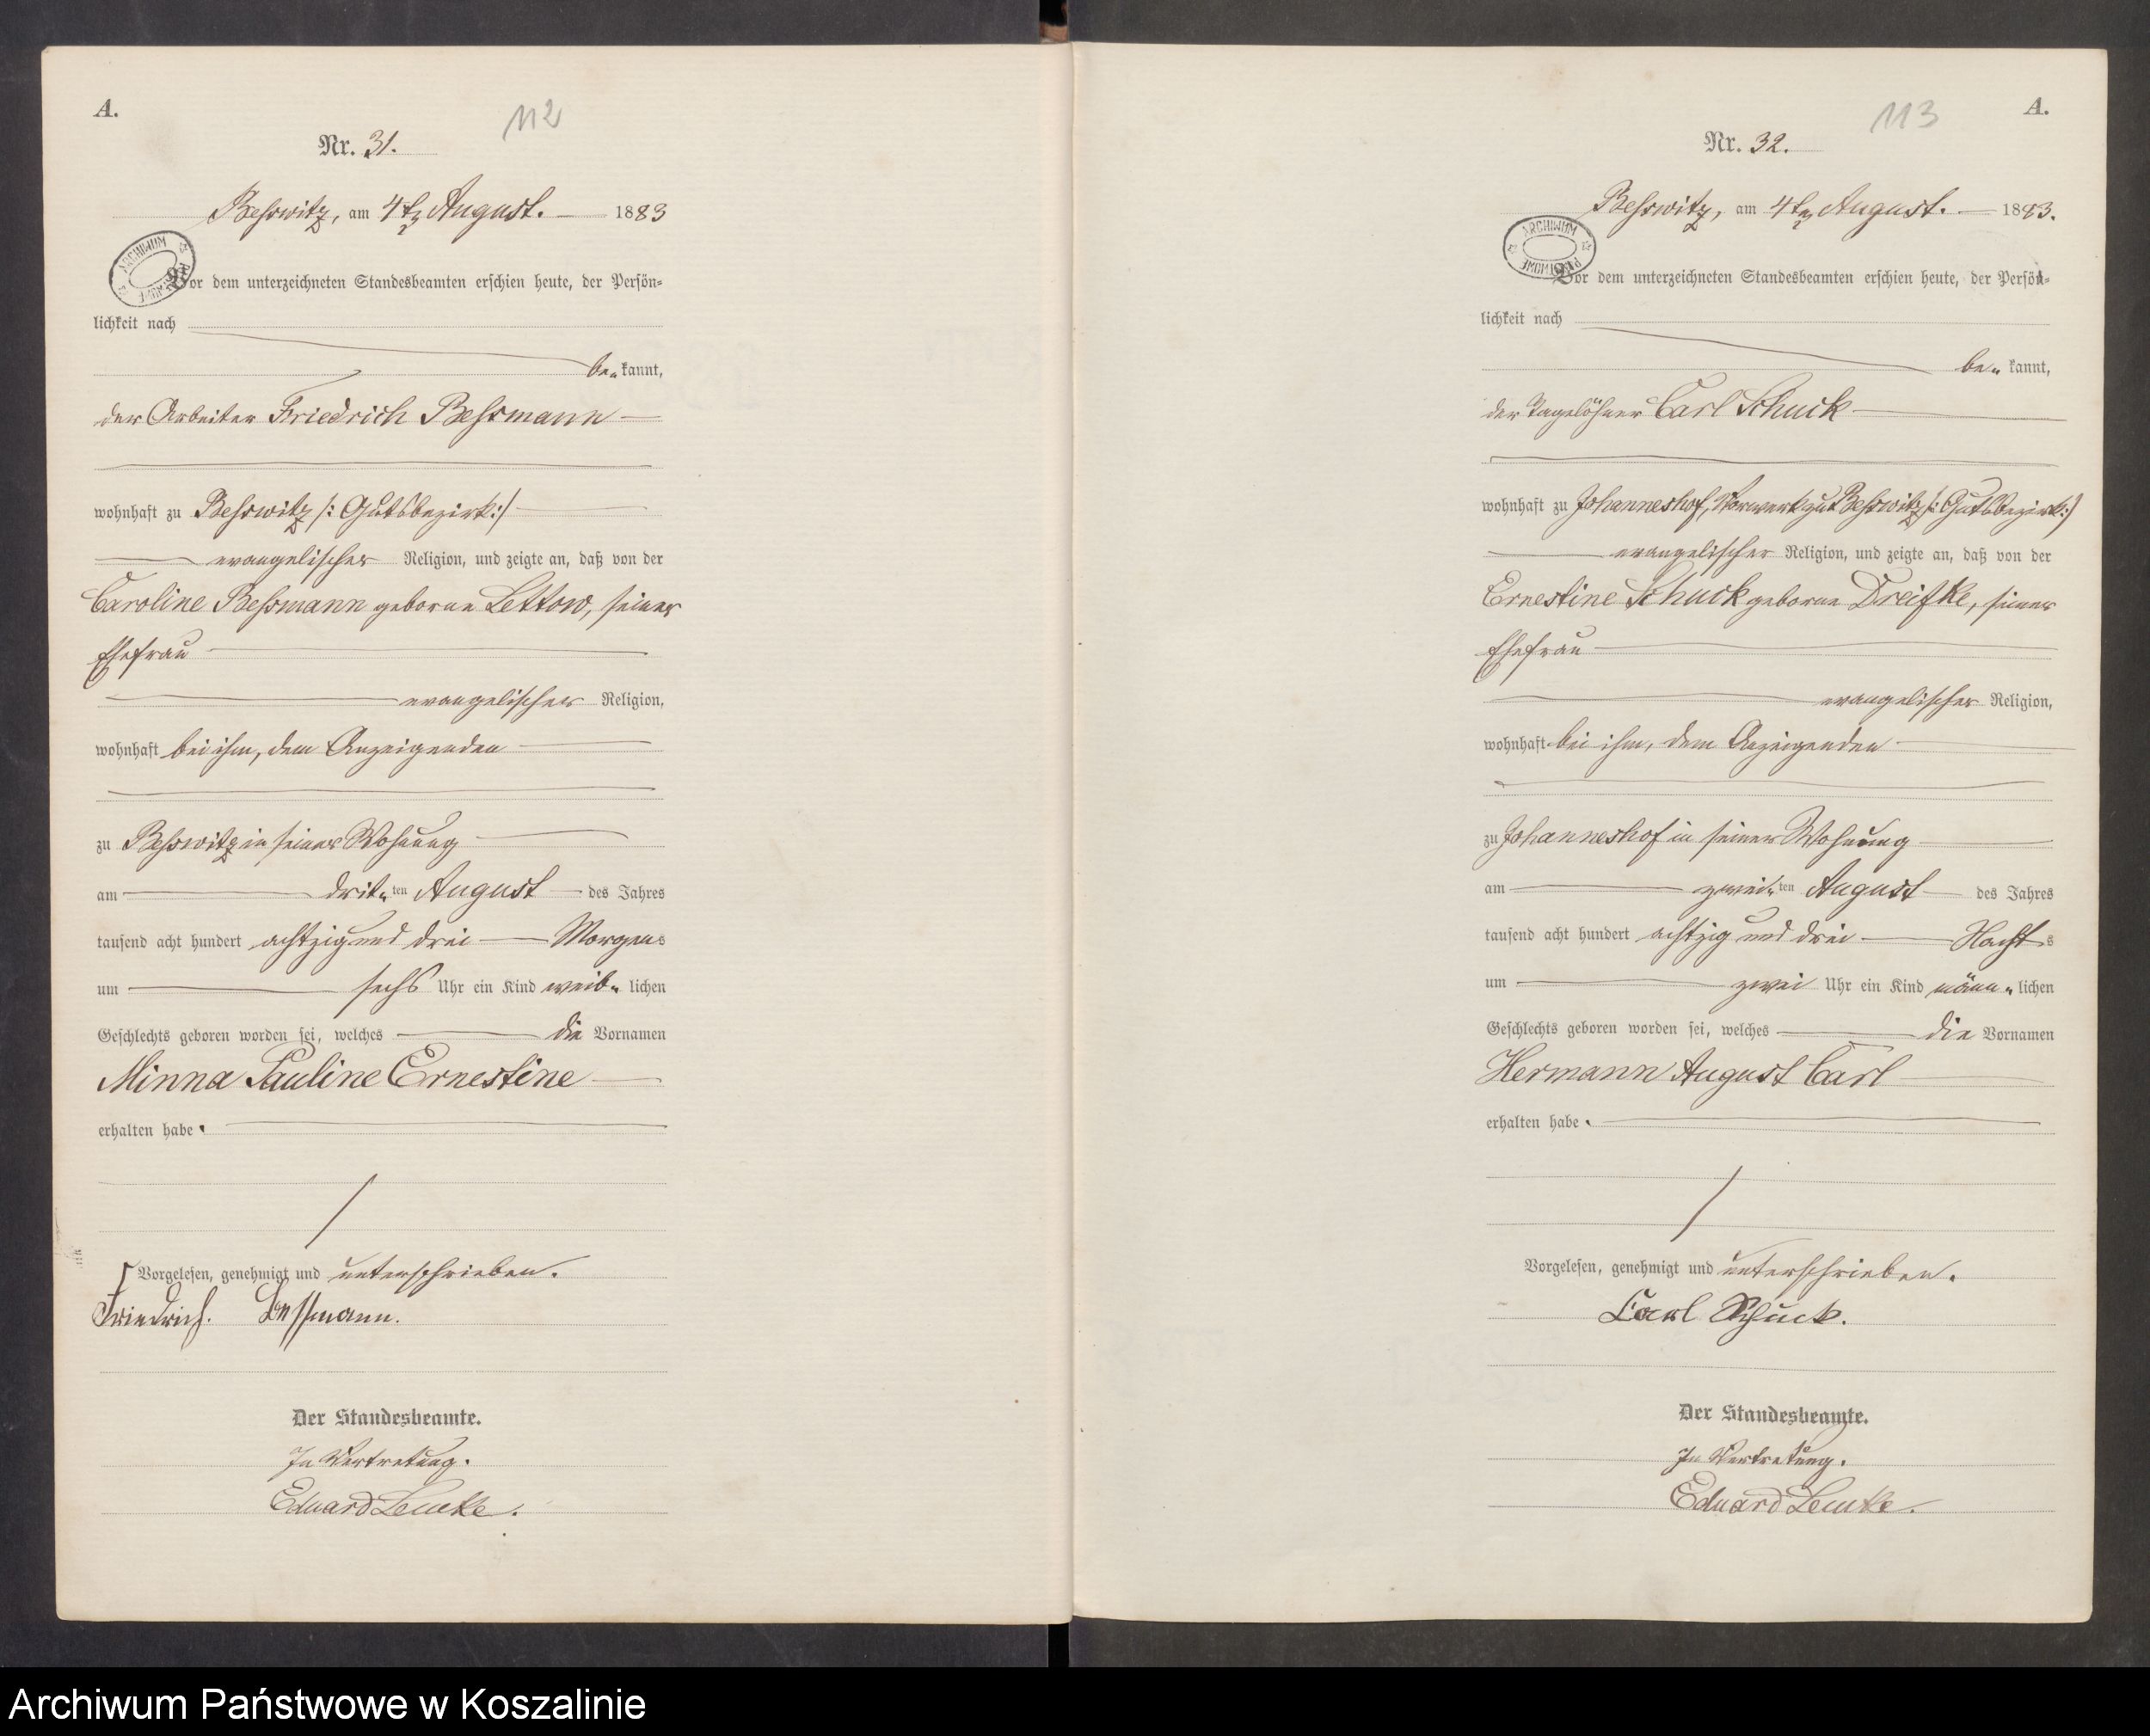 A.
112
Nr. 31.
Beßwitz, am 4ten August. 1883
ARCHIWUM
Vor dem unterzeichneten Standesbeamten erschien heute, der Persön-
lichkeit nach
be- kannt,
der Arbeiter Friedrich Beßmann
wohnhaft zu Beßwitz /: Gutsbezirk :/
evangelischer Religion, und zeigte an, daß von der
Caroline Beßmann geborne Lettow, seiner
Ehefrau
evangelischer Religion,
wohnhaft bei ihm, dem Anzeigenden
zu Beßwitz in seiner Wohnung
am drit-ten August des Jahres
tausend acht hundert achtzig und drei Morgens
um sechs Uhr ein Kind weib- lichen
Geschlechts geboren worden sei, welches die Vornamen
Minna Pauline Ernestine
erhalten habe.
Vorgelesen, genehmigt und unterschrieben.
Friedrich. Bessmann.
Der Standesbeamte.
In Vertretung.
Eduard Lemke.
113
A.
Nr. 32.
Beßwitz, am 4ten August. 1883.
ARCHIWUM
Vor dem unterzeichneten Standesbeamten erschien heute, der Persön-
lichkeit nach
be- kannt,
der Tagelöhner Carl Schuck
wohnhaft zu Johanneshof, Vorwerk zu Beßwitz /: Gutsbezirk :/
evangelischer Religion, und zeigte an, daß von der
Ernestine Schuck geborne Dreifke, seiner
Ehefrau
evangelischer Religion,
wohnhaft bei ihm, dem Anzeigenden
zu Johanneshof in seiner Wohnung
am zwei-ten August des Jahres
tausend acht hundert achtzig und drei Nachts
um zwei Uhr ein Kind männ- lichen
Geschlechts geboren worden sei, welches die Vornamen
Hermann August Carl
erhalten habe.
Vorgelesen, genehmigt und unterschrieben.
Carl Schuck.
Der Standesbeamte.
In Vertretung.
Eduard Lemke.
Archiwum Państwowe w Koszalinie